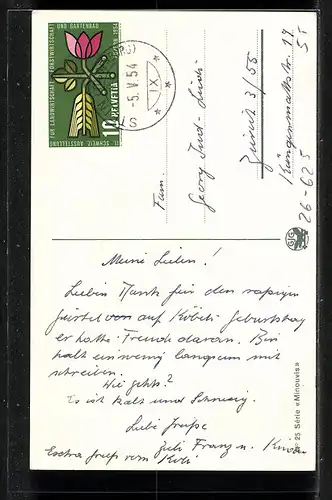 II. SCHWEIZ. AUSSTELLUNG FÜR LANDWIRTSCHAFT, FORSTWIRTSCHAFT UND GARTENBAU
LUZERN 1954
10 HELVETIA
-5. V. 54
IX
Fam.
Georg Jud-
Zürich 3/55
19
26-625
Meine Lieben!
Lieben Dank für den rassigen
Gürtel von auf Köbeli Geburtstag
er hatte Freude daran. Bin
halt ein wenig langsam mit
schreiben.
Wie gehts?
Es ist kalt und
Liebe Grüsse
Franz u. Kinder
Extra Gruss vom Köbi
N° 25 Série «Minouvis»